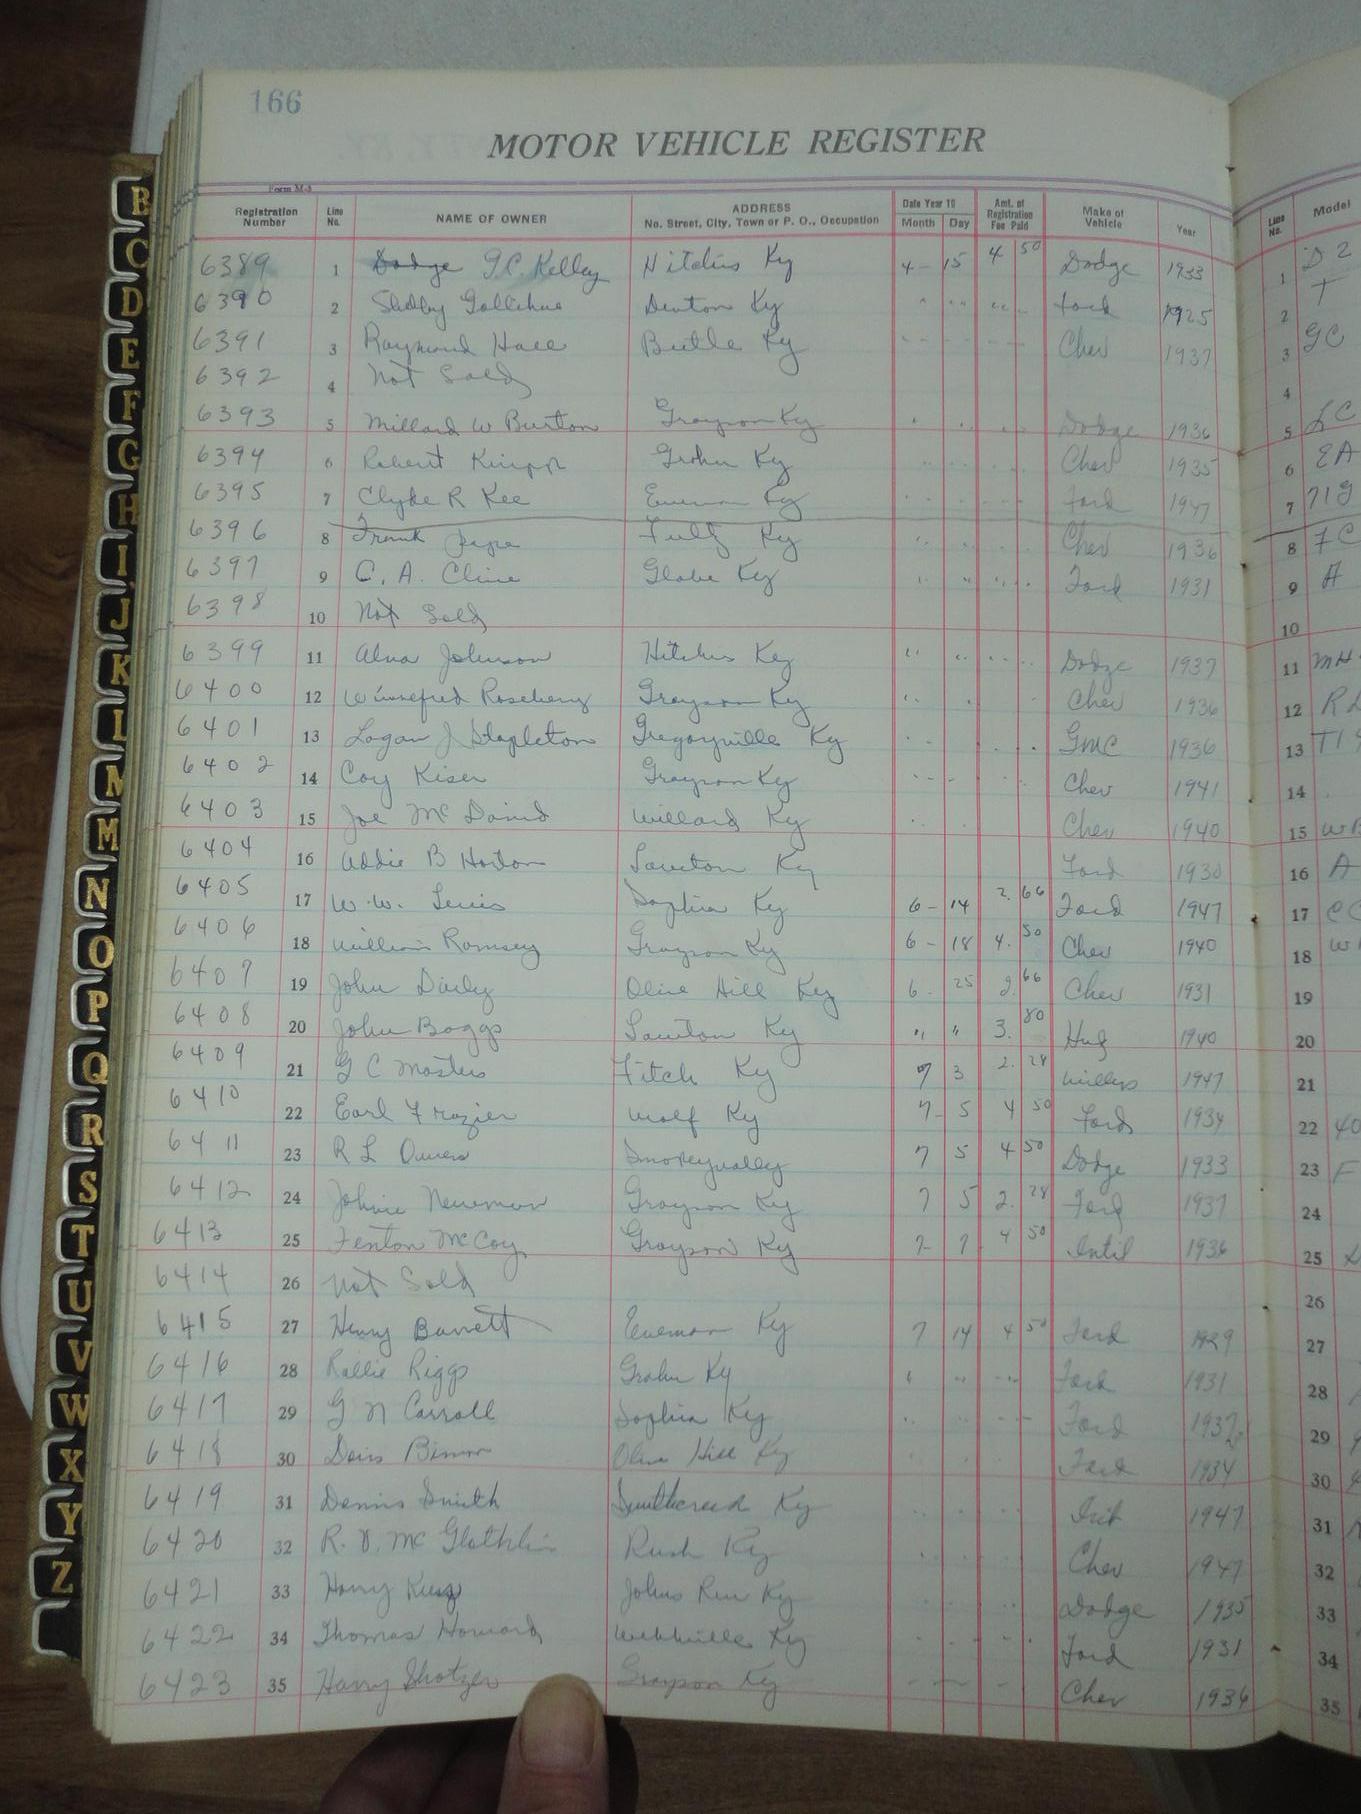 166
MOTOR VEHICLE REGISTER
Form M-3
Registration Number Line No. NAME OF OWNER ADDRESS No. Street, City, Town or P. O., Occupation Date Year 19 Month Day Amt. of Registration Fee Paid Make of Vehicle Year Line No. Model
6389 1 Dodge G.C. Kelley Hitchins Ky 4- 15 4 50 Dodge 1933 1 D2
6390 2 Shelby Gollihue Denton Ky " " " " Ford 1925 2 T
6391 3 Raymond Hall Ky Chev 1937 3 GC
6392 4 Not Sold 4
6393 5 Millard W Burton Grayson Ky Dodge 1936 5 LC
6394 6 Robert Grahn Ky Chev 1935 6 EA
6395 7 Clyde R Kee Everman Ky Ford 1947 7 71G
6396 8 Frank Fultz Ky Chev 1936 8 FC
6397 9 C. A. Cline Globe Ky Ford 1931 9 A
6398 10 Not Sold 10
6399 11 Alva Johnson Hitchins Ky Dodge 1937 11 MH
6400 12 Winnefred Roseberry Grayson Ky Chev 1936 12
6401 13 Logan J Stapleton Gregoryville Ky GMC 1936 13
6402 14 Coy Kiser Grayson Ky Chev 1941 14
6403 15 Joe McDavid Willard Ky Chev 1940 15
6404 16 Addie B Horton Lawton Ky Ford 1930 16 A
6405 17 W. W. Lewis Sophia Ky 6- 14 2. 66 Ford 1947 17
6406 18 William Ramsey Grayson Ky 6- 18 4. 50 Chev 1940 18
6407 19 John Olive Hill Ky 6- 25 2. 66 Chev 1931 19
6408 20 John Boggs Lawton Ky " " 3. 80 1940 20
6409 21 G C Masters Fitch Ky 7 3 2. 28 Willys 1947 21
6410 22 Earl Frazier Wolf Ky 7- 5 4 50 Ford 1934 22 40
6411 23 R L Owens Smokeyvalley 7 5 4 50 Dodge 1933 23 F
6412 24 Johnie Newman Grayson Ky 7 5 2. 28 Ford 1937 24
6413 25 Fenton McCoy Grayson Ky 7- 7 4 50 Intil 1936 25
6414 26 Not Sold 26
6415 27 Henry Barrett Everman Ky 7 14 4 50 Ford 1929 27
6416 28 Rollie Riggs Grahn Ky Ford 1931 28
6417 29 G N Carroll Sophia Ky Ford 1937 29
6418 30 Olive Hill Ky Ford 1934 30
6419 31 Dennis Smith Ky 1947 31
6420 32 R. D. McGlothlin Rush Ky Chev 1947 32
6421 33 Harry King Johns Run Ky Dodge 1935 33
6422 34 Thomas Howard Webbville Ky Ford 1931 34
6423 35 Harry Shotzer Grayson Ky Chev 1936 35
B
C
D
E
F
G
H
I
J
K
L
M
M
N
O
P
Q
R
S
T
U
V
W
X
Y
Z